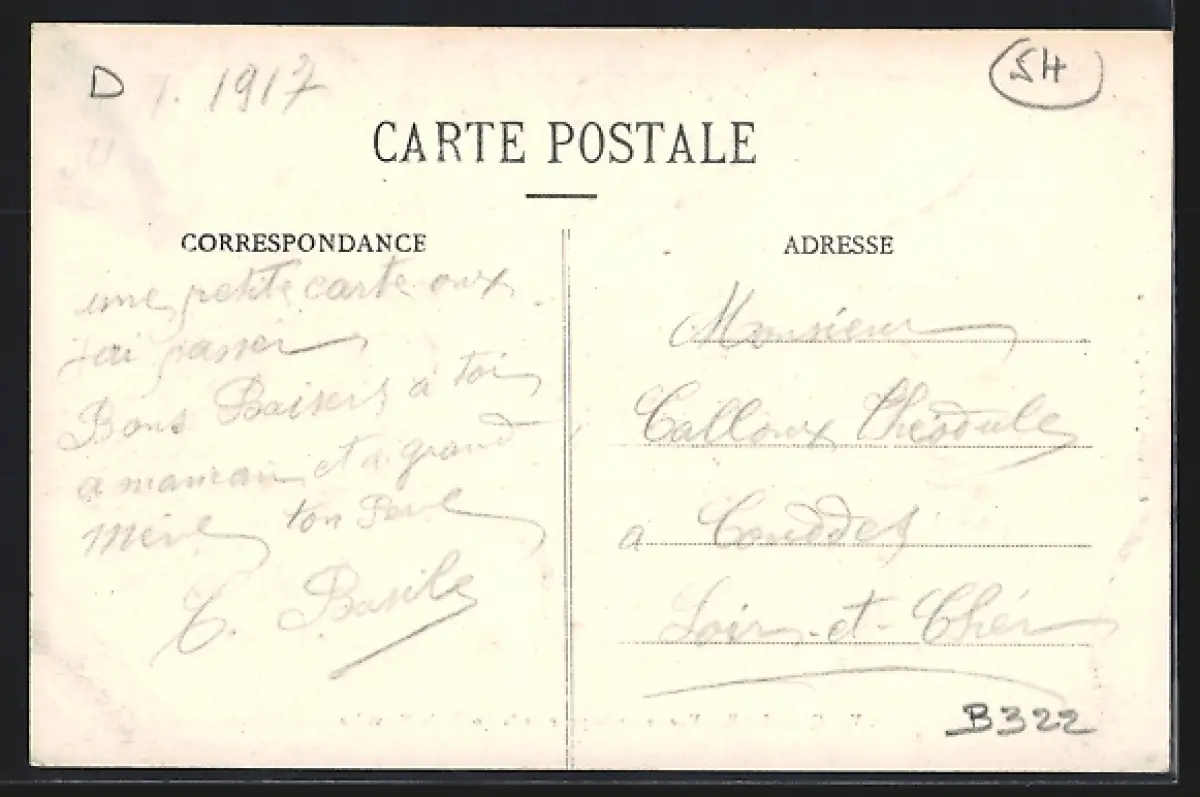 D 1. 1917
54
CARTE POSTALE
CORRESPONDANCE
une petite carte oux
j'ai passer
Bons Baisers à toi
a maman et a grand
mère ton Pere
C. Basile
ADRESSE
Monsieur
Calloux Théodule
a Couddes
Loir-et-Cher
B322